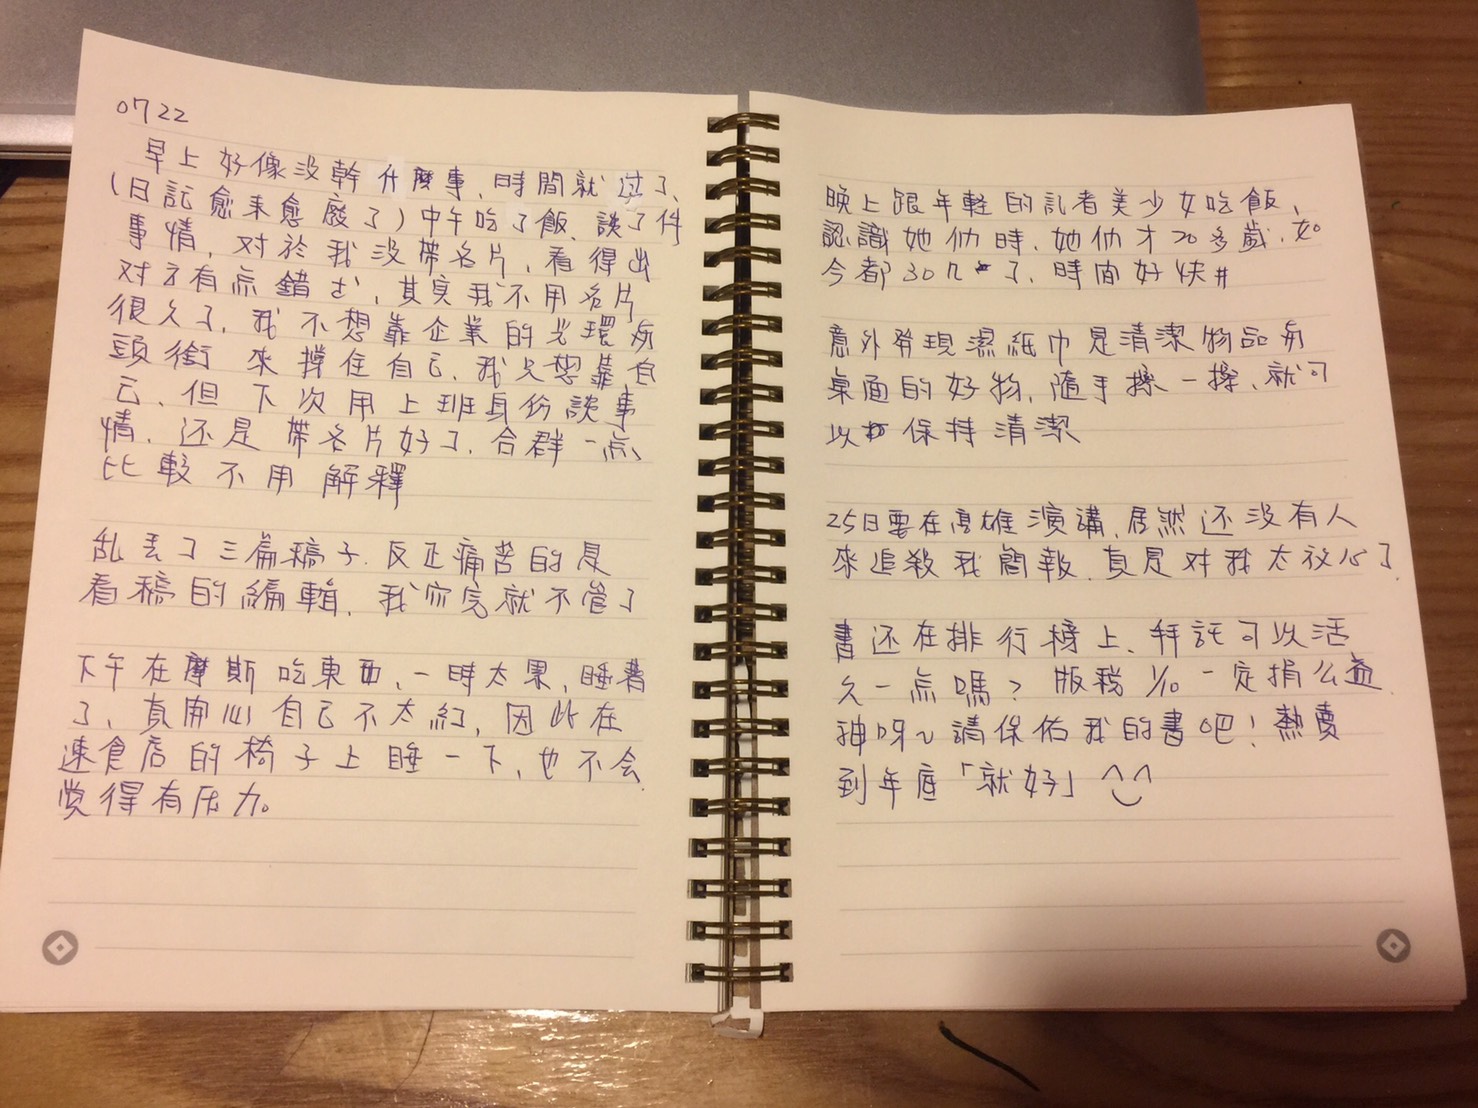 0722
早上好像沒幹什麼事、時間就过了、
(日記愈來愈廢了)中午吃了飯、談了件
事情,对於我沒帶名片,看得出
对方有点錯愕、其实我不用名片
很久了,我不想靠企業的光環与
頭銜來撐住自己、我只想靠自
己、但下次用上班身份談事
情、还是帶名片好了、合群一点
比較不用解釋
乱丟了三篇稿子.反正痛苦的是
看稿的編輯、我寫完就不管了
下午在摩斯吃東西、一時太累,睡着
了、真開心自己不太紅,因此在
速食店的椅子上睡一下、也不会
覚得有压力。
晚上跟年輕的記者美少女吃飯、
認識她們時、她們才20多歲、如
今都30几了、時間好快#
意外發現濕紙巾是清潔物品与
桌面的好物,隨手擦一擦、就可
以 保持清潔
25日要在高雄演講、居然还沒有人
來追殺我簡報、真是对我太放心了
書还在排行榜上、拜託可以活
久一点嗎?版稅1/10一定捐公益
神呀~請保佑我的書吧!熱賣
到年底「就好」^_^